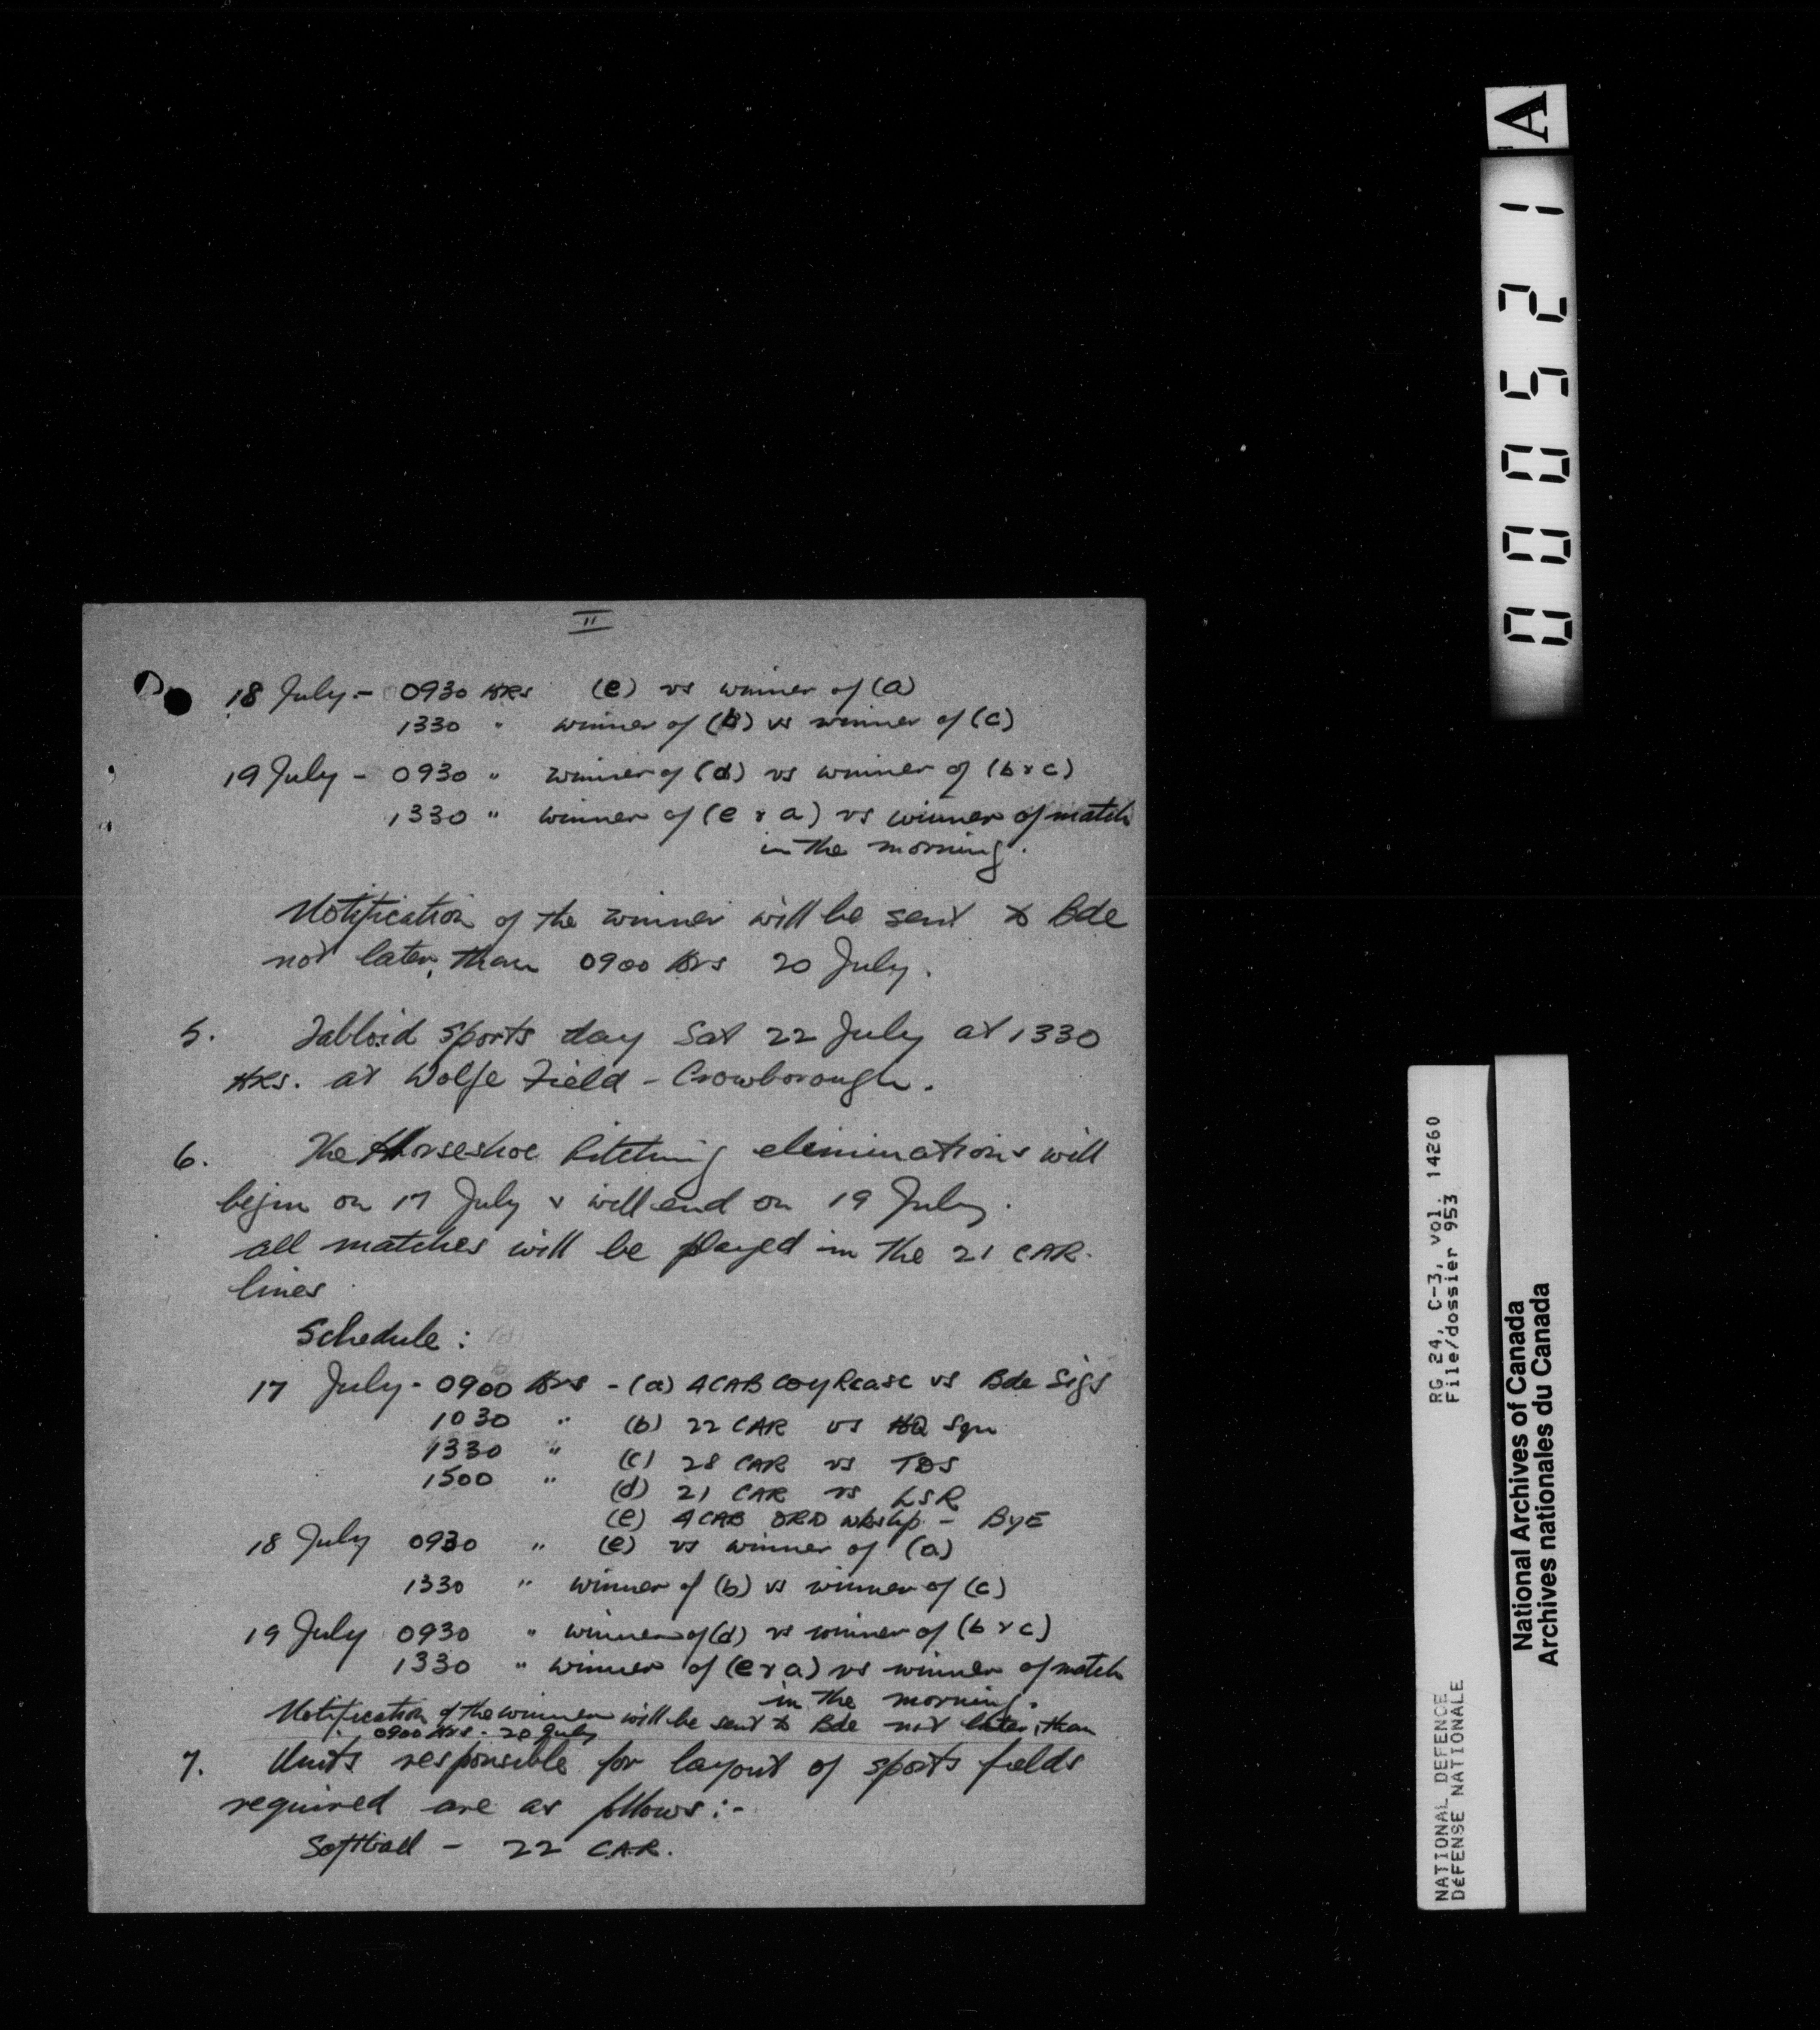 II
18 July - 0930 HRS (e) vs winner of (a)
1330 " winner of (b) vs winner of (c)
19 July - 0930 " winner of (d) vs winner of (b & c)
1330 " winner of (e & a) vs winner of match
in the morning.
Notification of the winner will be sent to Bde
not later than 0900 Hrs 20 July.
5. Tabloid sports day Sat 22 July at 1330
HRS. at Wolfe Field - Crowborough.
6. The Horseshoe Pitching eliminations will
begin on 17 July & will end on 19 July.
All matches will be played in the 21 CAR.
lines.
Schedule:
17 July - 0900 Hrs - (a) 4CAB Coy RCASC vs Bde Sigs
1030 " (b) 22 CAR vs HQ Sqn
1330 " (c) 28 CAR vs TDS
1500 " (d) 21 CAR vs LSR
(e) 4CAB ORD Wkshp - ByE
18 July 0930 " (e) vs winner of (a)
1330 " winner of (b) vs winner of (c)
19 July 0930 " winner of (d) vs winner of (b & c)
1330 " winner of (e & a) vs winner of match
in the morning.
Notification of the winner will be sent to Bde not later than
0900 Hrs. 20 July
7. Units responsible for layout of sports fields
required are as follows:-
Softball - 22 C.A.R.
A
000521
RG 24, C-3, vol. 14260
File/dossier 953
NATIONAL DEFENCE
DÉFENSE NATIONALE
National Archives of Canada
Archives nationales du Canada